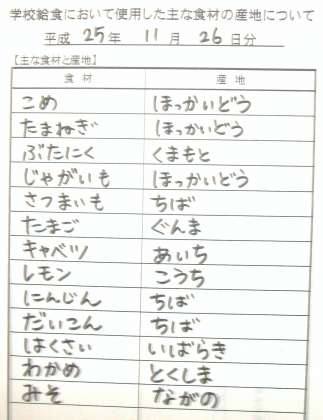 学校給食において使用した主な食材の産地について
平成 25 年 11 月 26 日分
【主な食材と産地】
食材 産地
こめ ほっかいどう
たまねぎ ほっかいどう
ぶたにく くまもと
じゃがいも ほっかいどう
さつまいも ちば
たまご ぐんま
キャベツ あいち
レモン こうち
にんじん ちば
だいこん ちば
はくさい いばらき
わかめ とくしま
みそ ながの